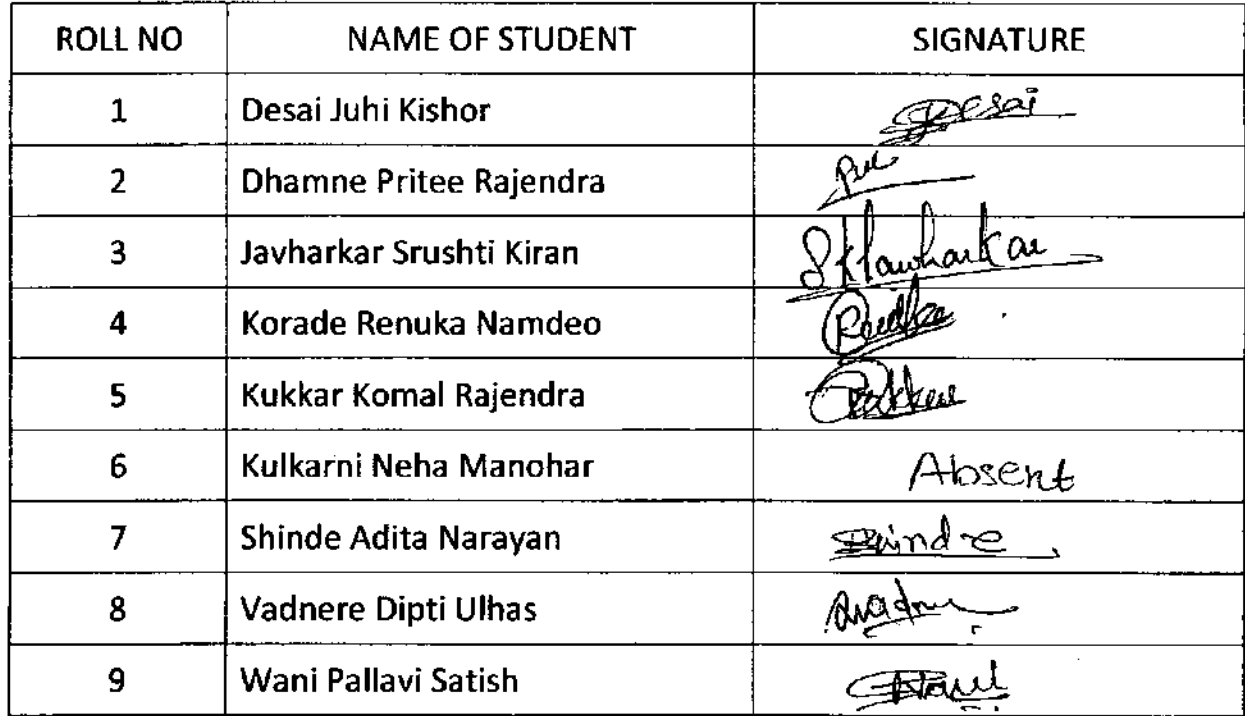 ROLL NO NAME OF STUDENT SIGNATURE
1 Desai Juhi Kishor Desai
2 Dhamne Pritee Rajendra
3 Javharkar Srushti Kiran
4 Korade Renuka Namdeo
5 Kukkar Komal Rajendra
6 Kulkarni Neha Manohar Absent
7 Shinde Adita Narayan
8 Vadnere Dipti Ulhas
9 Wani Pallavi Satish